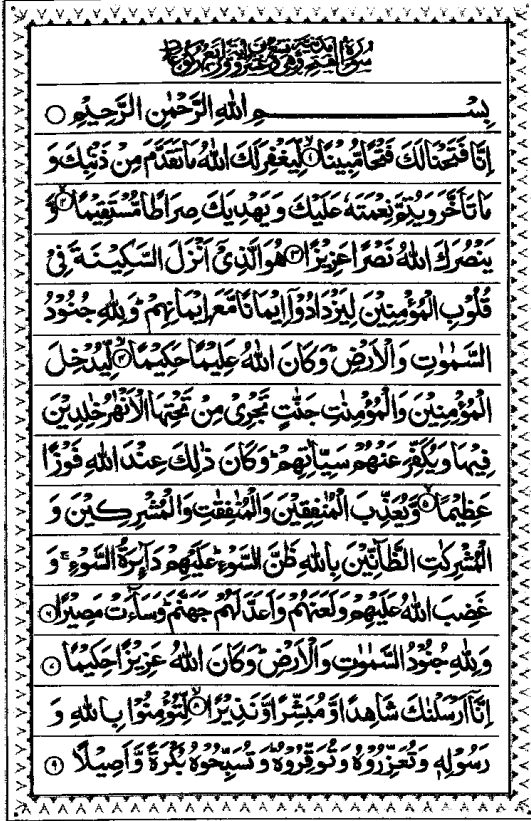 سورة الفتح مدنية وهى تسع وعشرون اية واربع ركوعات
بِسْمِ اللهِ الرَّحْمٰنِ الرَّحِيْمِ ○
اِنَّا فَتَحْنَا لَكَ فَتْحًا مُّبِيْنًا ۙ﴿۱﴾ لِّيَغْفِرَ لَكَ اللهُ مَا تَقَدَّمَ مِنْ ذَنْۢبِكَ وَ
مَا تَاَخَّرَ وَيُتِمَّ نِعْمَتَهٗ عَلَيْكَ وَ يَهْدِيَكَ صِرَاطًا مُّسْتَقِيْمًا ۙ﴿۲﴾ وَّ
يَنْصُرَكَ اللهُ نَصْرًا عَزِيْزًا ﴿۳﴾ هُوَ الَّذِىْۤ اَنْزَلَ السَّكِيْنَةَ فِىْ
قُلُوْبِ الْمُؤْمِنِيْنَ لِيَزْدَادُوْۤا اِيْمَانًا مَّعَ اِيْمَانِهِمْ ؕ وَلِلّٰهِ جُنُوْدُ
السَّمٰوٰتِ وَالْاَرْضِ ؕ وَكَانَ اللهُ عَلِيْمًا حَكِيْمًا ۙ﴿۴﴾ لِّيُدْخِلَ
الْمُؤْمِنِيْنَ وَالْمُؤْمِنٰتِ جَنّٰتٍ تَجْرِىْ مِنْ تَحْتِهَا الْاَنْهٰرُ خٰلِدِيْنَ
فِيْهَا وَيُكَفِّرَ عَنْهُمْ سَيِّاٰتِهِمْ ؕ وَكَانَ ذٰلِكَ عِنْدَ اللهِ فَوْزًا
عَظِيْمًا ۙ﴿۵﴾ وَّيُعَذِّبَ الْمُنٰفِقِيْنَ وَالْمُنٰفِقٰتِ وَالْمُشْرِكِيْنَ وَ
الْمُشْرِكٰتِ الظَّآنِّيْنَ بِاللهِ ظَنَّ السَّوْءِ ؕ عَلَيْهِمْ دَآئِرَةُ السَّوْءِ ۚ وَ
غَضِبَ اللهُ عَلَيْهِمْ وَلَعَنَهُمْ وَاَعَدَّ لَهُمْ جَهَنَّمَ ؕ وَسَآءَتْ مَصِيْرًا ﴿۶﴾
وَلِلّٰهِ جُنُوْدُ السَّمٰوٰتِ وَالْاَرْضِ ؕ وَكَانَ اللهُ عَزِيْزًا حَكِيْمًا ﴿۷﴾
اِنَّاۤ اَرْسَلْنٰكَ شَاهِدًا وَّ مُبَشِّرًا وَّ نَذِيْرًا ۙ﴿۸﴾ لِّتُؤْمِنُوْا بِاللهِ وَ
رَسُوْلِهٖ وَتُعَزِّرُوْهُ وَتُوَقِّرُوْهُ ؕ وَتُسَبِّحُوْهُ بُكْرَةً وَّ اَصِيْلًا ﴿۹﴾